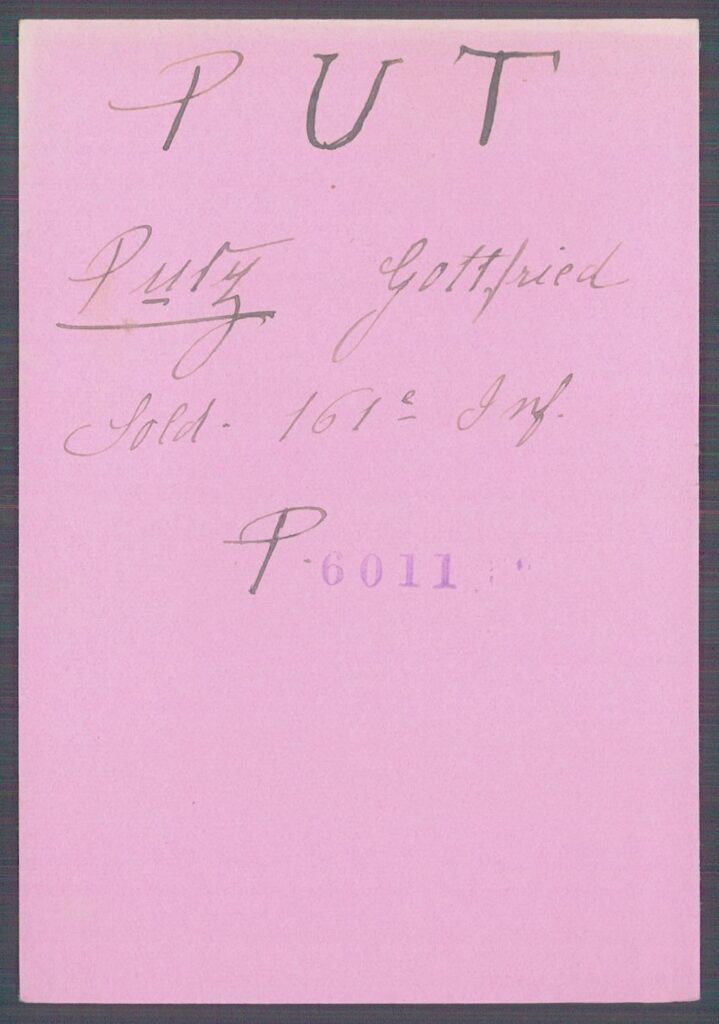 PUT
Putz Gottfried
Sold. 161e Inf.
P 6011